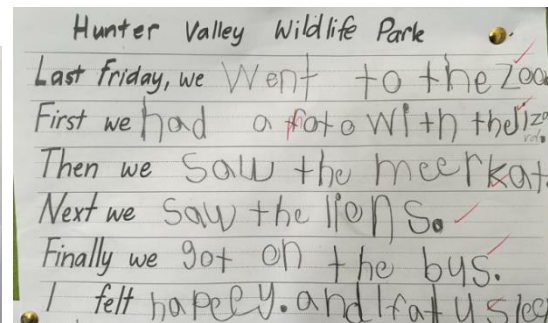 Hunter Valley Wildlife Park
Last Friday, we Went to the Zoo
First we had a foto With the
Then we Saw the meerkat.
Next we Saw the lions.
Finally we got on the bys.
I felt hapeey. and I